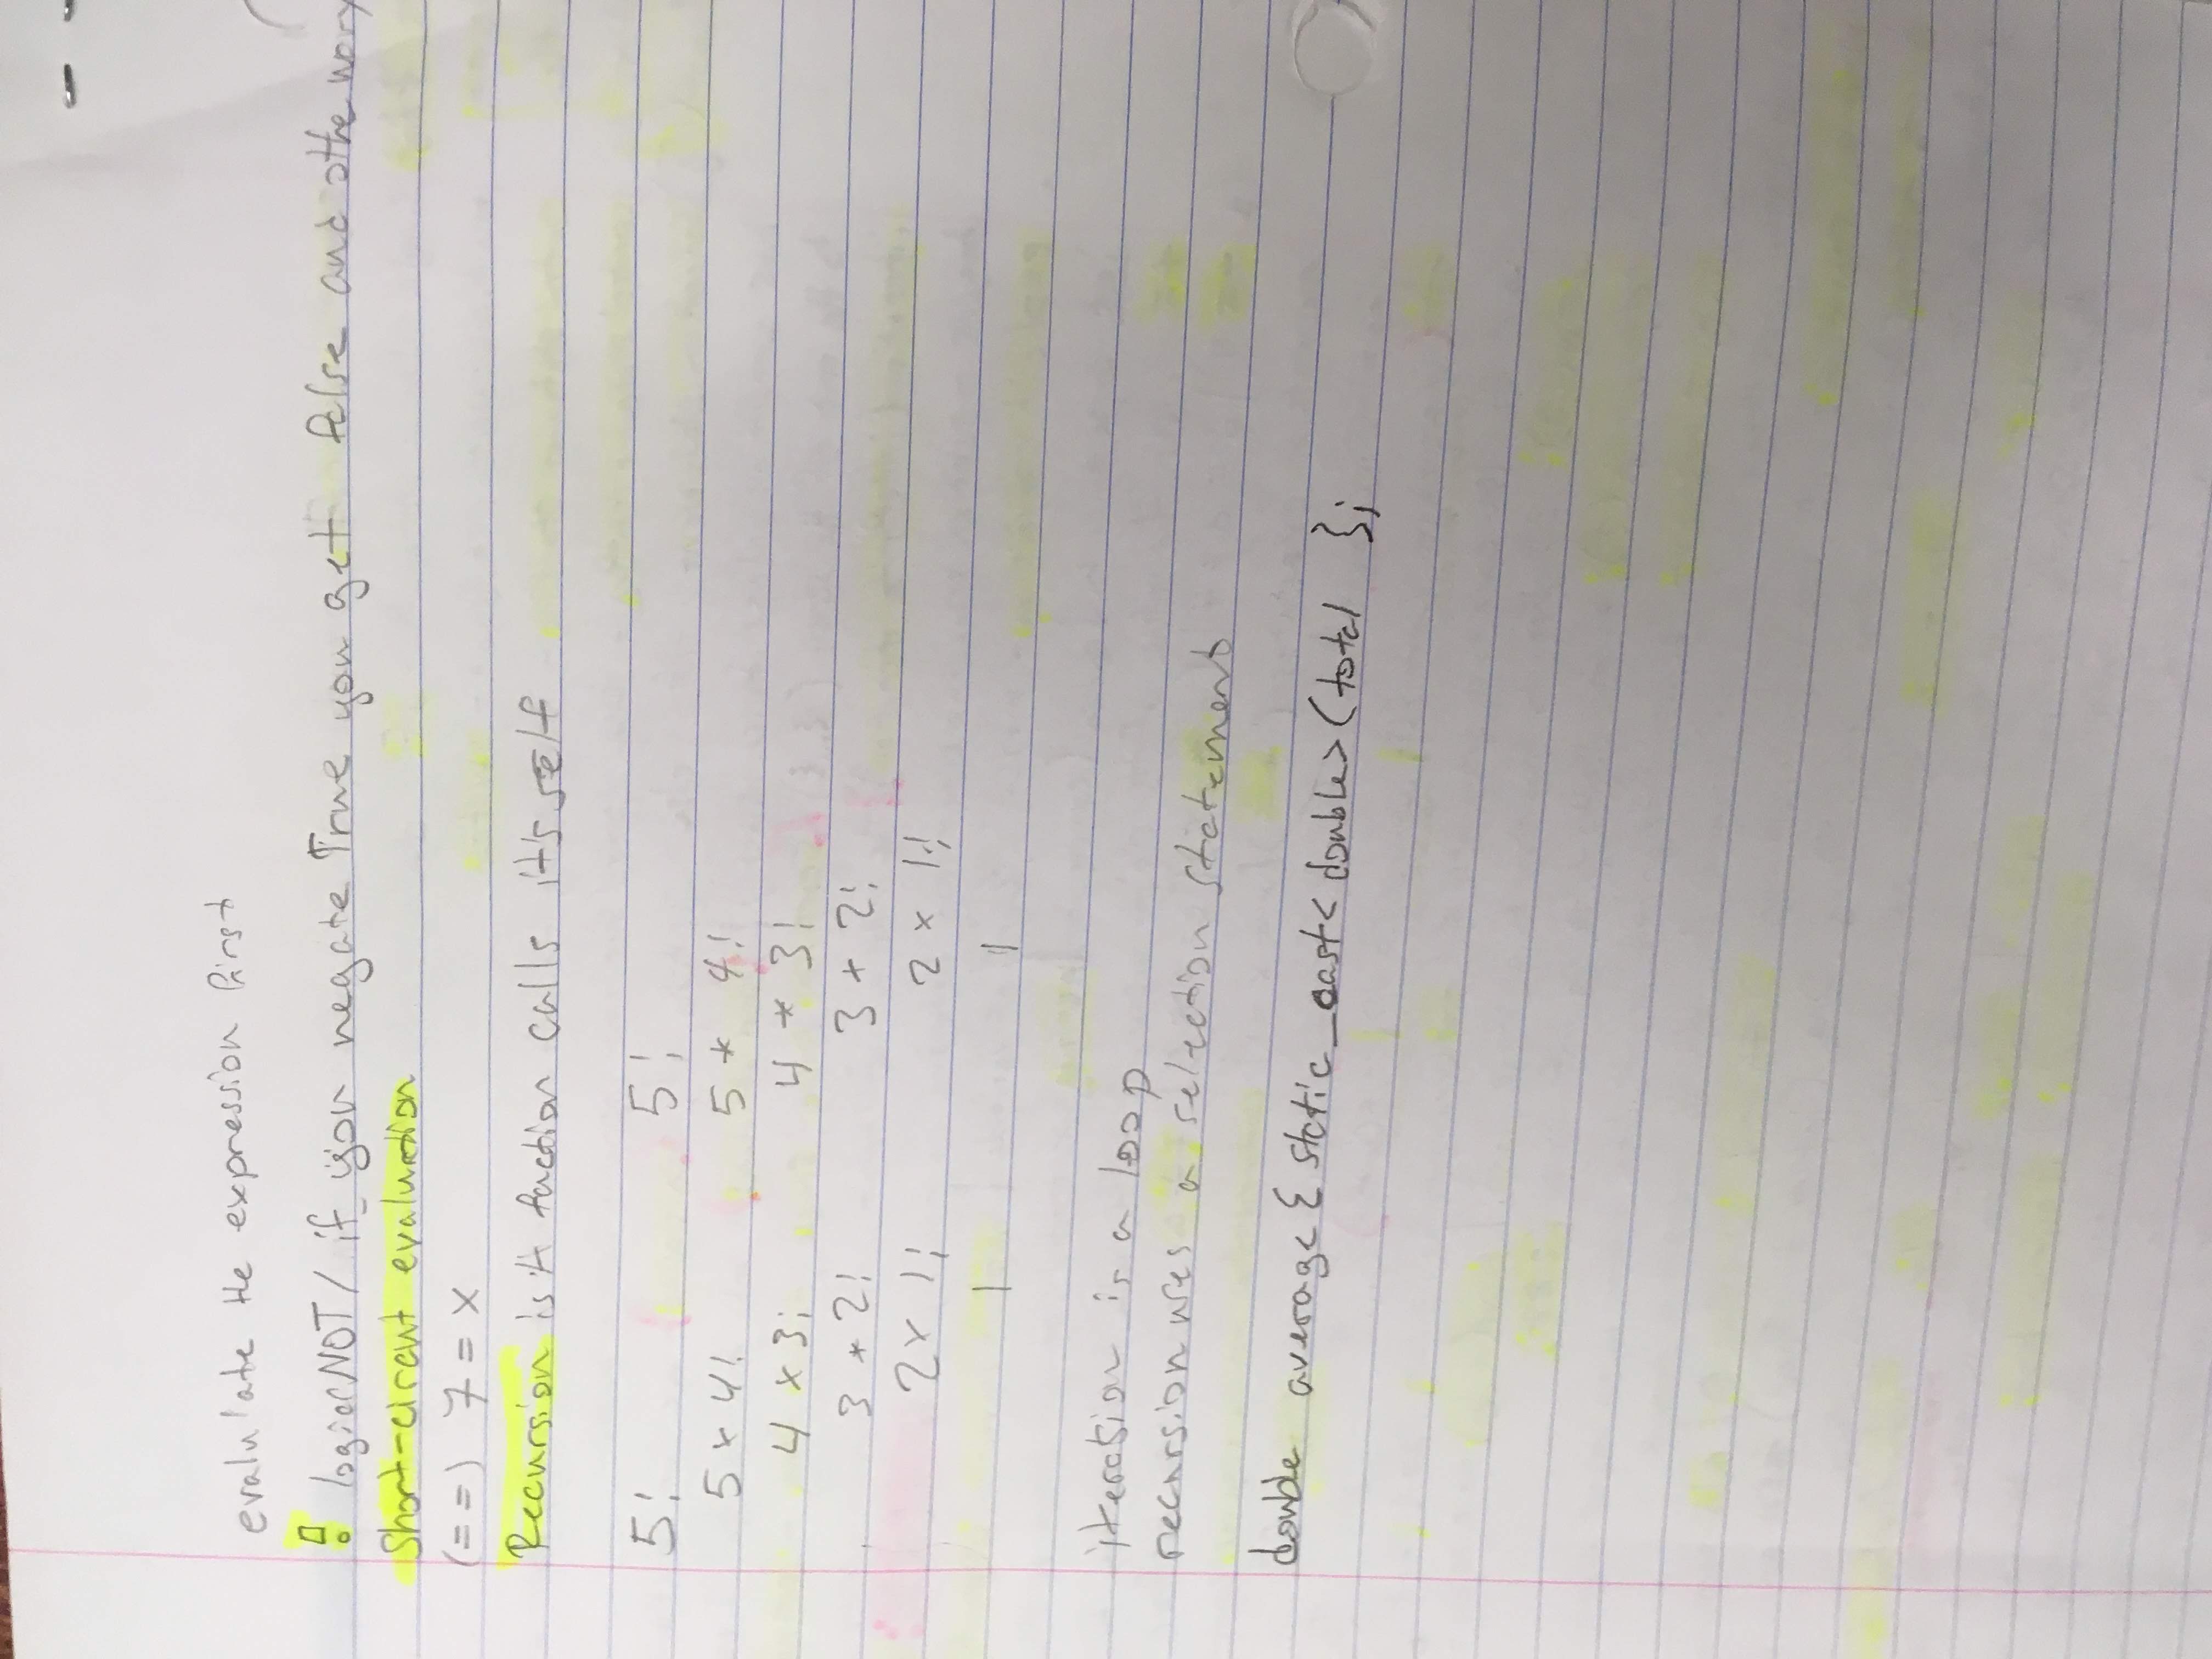 evaluate the expression first
! logical NOT / if you negate True you get false and othe way
Short-circut evaluation
(==) 7 = x
Recursion is it function calls it's self
5! 5!
5 x 4! 5 * 4!
4 x 3! 4 * 3!
3 * 2! 3 * 2!
2 x 1! 2 x 1!
1 1
iteration is a loop
recursion uses a selection statement
double average { static_cast<double>(total };